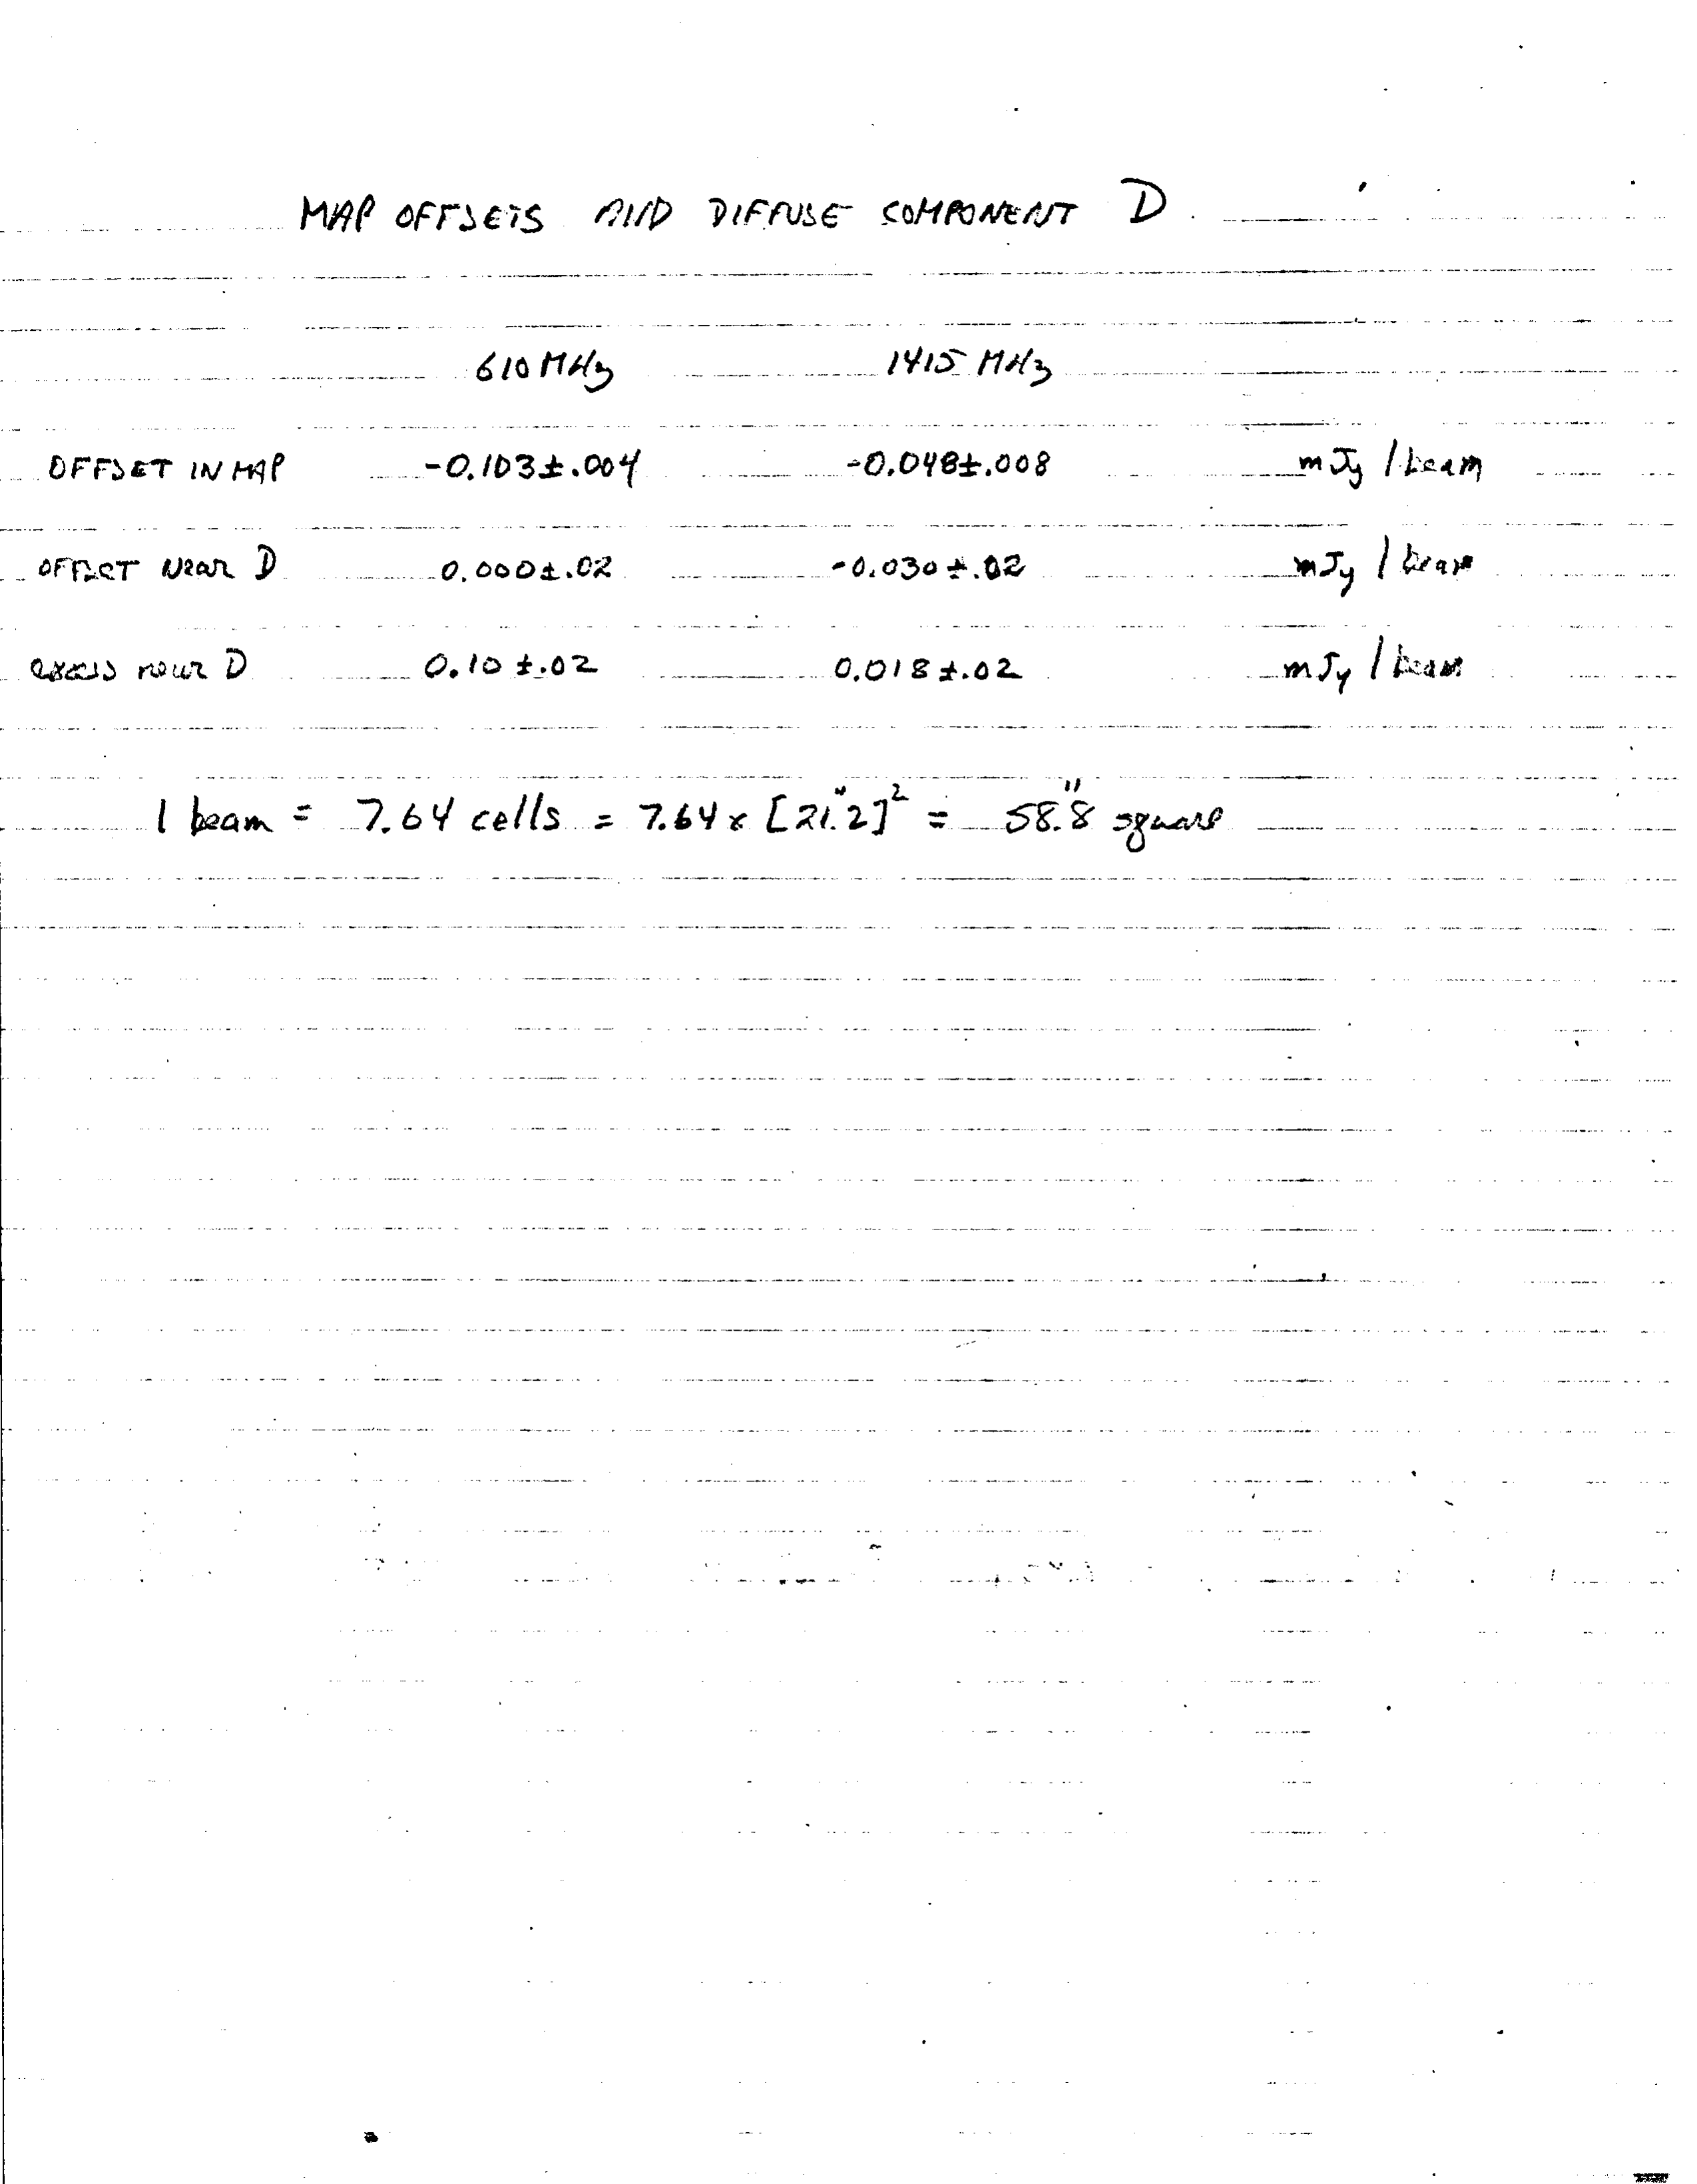 MAP OFFSETS AND DIFFUSE COMPONENT D
610 MHz 1415 MHz
OFFSET IN MAP -0.103±.004 -0.048±.008 mJy / beam
OFFSET NEAR D 0.000±.02 -0.030±.02 mJy / beam
excess near D 0.10±.02 0.018±.02 mJy / beam
1 beam = 7.64 cells = 7.64 x [21."2]² = 58."8 square